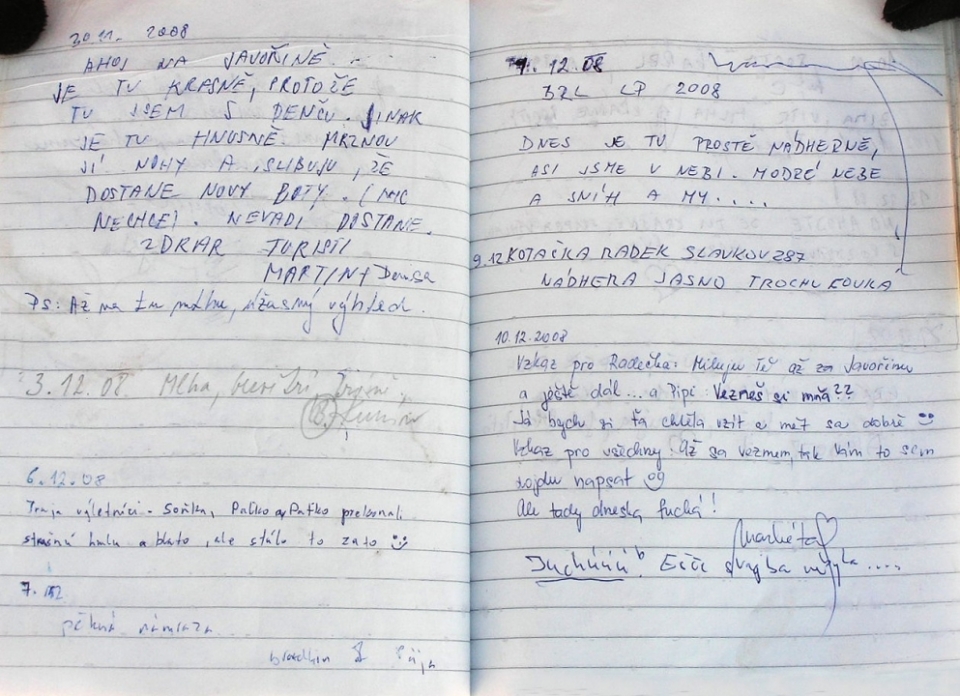 30.11. 2008
AHOJ NA JAVOŘINĚ...
JE TU KRASNĚ, PROTOŽE
TU JSEM S DENČU. JINAK
JE TU HNUSNĚ. MRZNOU
JÍ NOHY A SLIBUJU, ŽE
DOSTANE NOVY BOTY. (MC
NECHCE). NEVADÍ DOSTANE.
ZDRAR TURISTI
MARTIN + Denisa
Ps: Až na tu mlhu, úžasný výhled.
3.12.08 Mlha,
6.12.08
Traja výletníci - Soňka, Paťko a Paťko prekonali
strašnú hmlu a blato, ale stálo to zato
7. 12
pěkná námraza
7. 12.08
BZL LP 2008
DNES JE TU PROSTĚ NÁDHERNĚ,
ASI JSME V NEBI. MODRÉ NEBE
A SNÍH A MY....
9.12 KOTAČKA RADEK SLAVKOV 287
NÁDHERA JASNO TROCHU FOUKÁ
10.12.2008
Vzkaz pro Radečka: Miluju Tě až za Javořinu
a ještě dál... a Pipi: Vezneš si mňa??
Já bych si ťa chtěla vzít a mět sa dobře
Vzkaz pro všechny: Až sa vezmem, tak Vám to sem
dojdu napsat
Ale tady dneska fučá!
Markéta
Juchúúú! Ešče